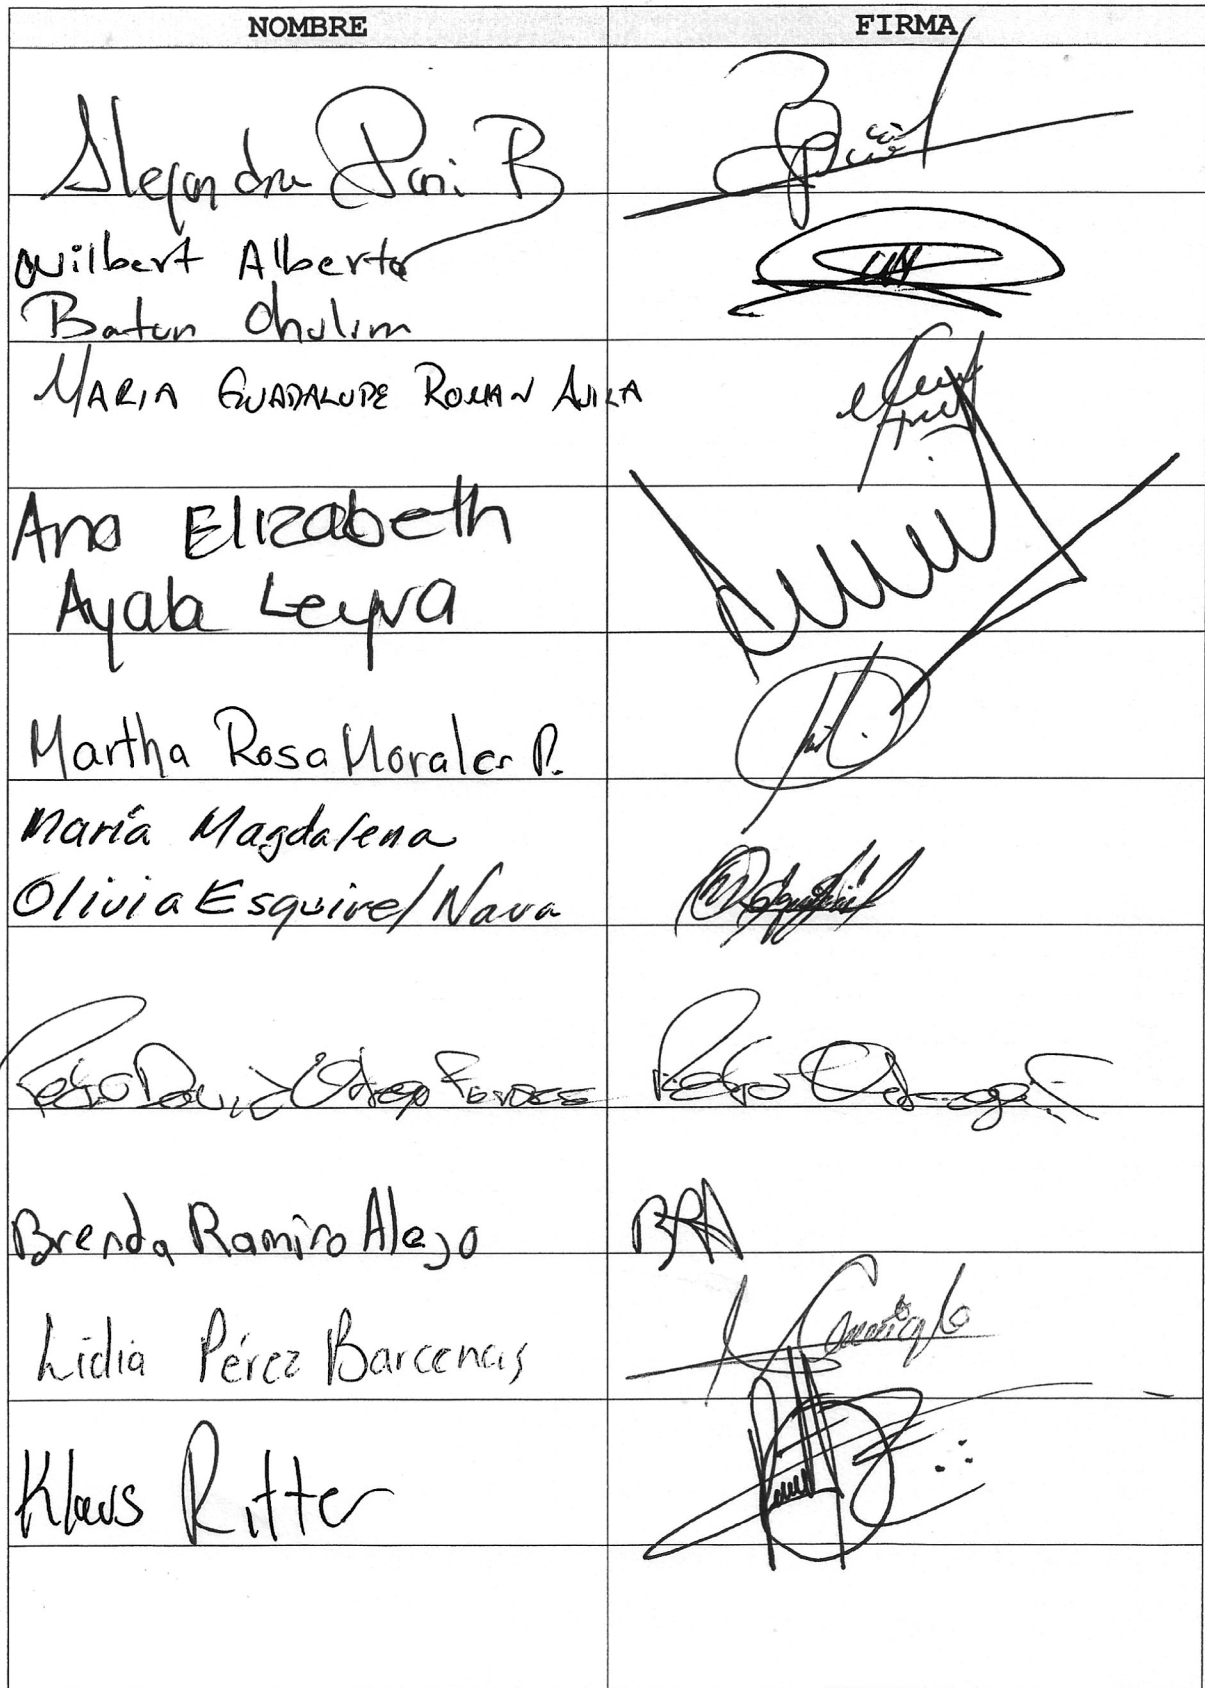 NOMBRE FIRMA
Alejandra Pani B
Wilbert Alberto
Batun Chulim
MARIA GUADALUPE ROMAN AVILA
Ana Elizabeth
Ayala Leyva
Martha Rosa Morales P.
María Magdalena
Olivia Esquivel Nava
Pedro David
Pedro
Brenda Ramiro Alejo BRA
Lidia Pérez Barcenas
Klaus Ritter